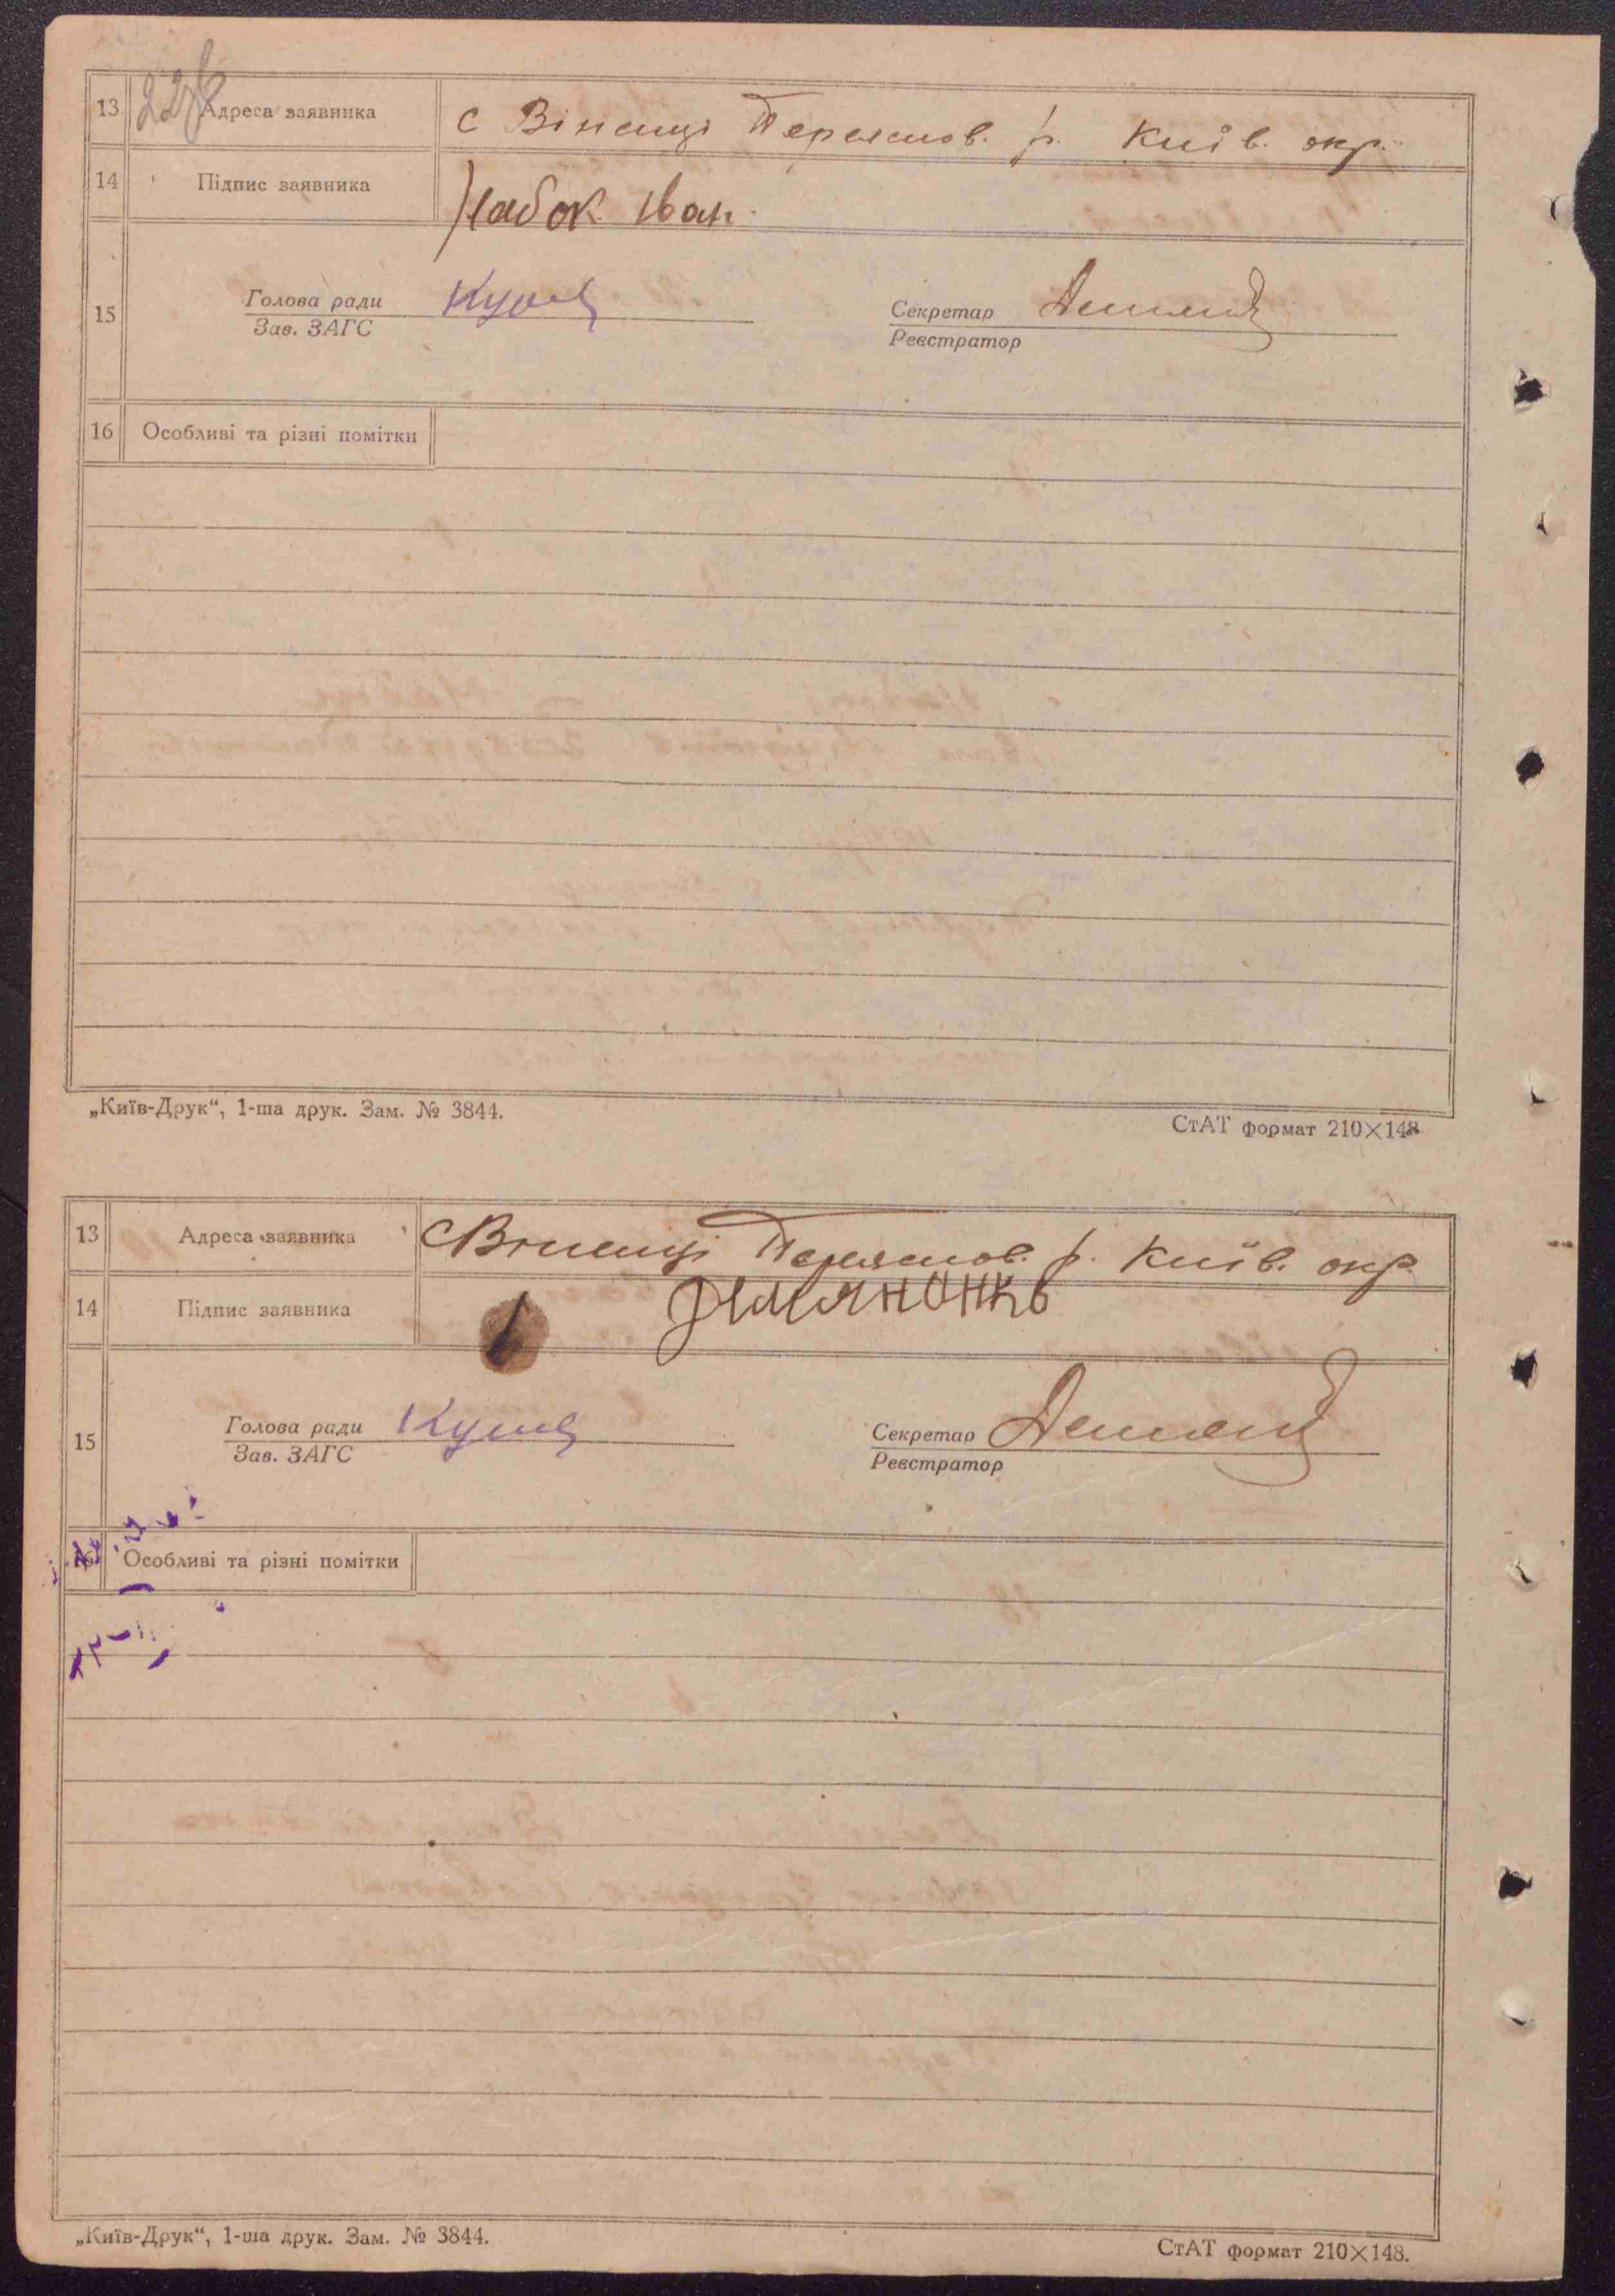 13 Адреса заявника с Віненці Переяслов. р. Київ. окр.
14 Підпис заявника Набок Іван.
15 Голова ради Секретар
Зав. ЗАГС Реєстратор
16 Особливі та різні помітки
„Київ-Друк“, 1-ша друк. Зам. № 3844. СтАТ формат 210×148
13 Адреса заявника с Віненці Переяслов. р. Київ. окр.
14 Підпис заявника
15 Голова ради Секретар
Зав. ЗАГС Реєстратор
16 Особливі та різні помітки
„Київ-Друк“, 1-ша друк. Зам. № 3844. СтАТ формат 210×148.